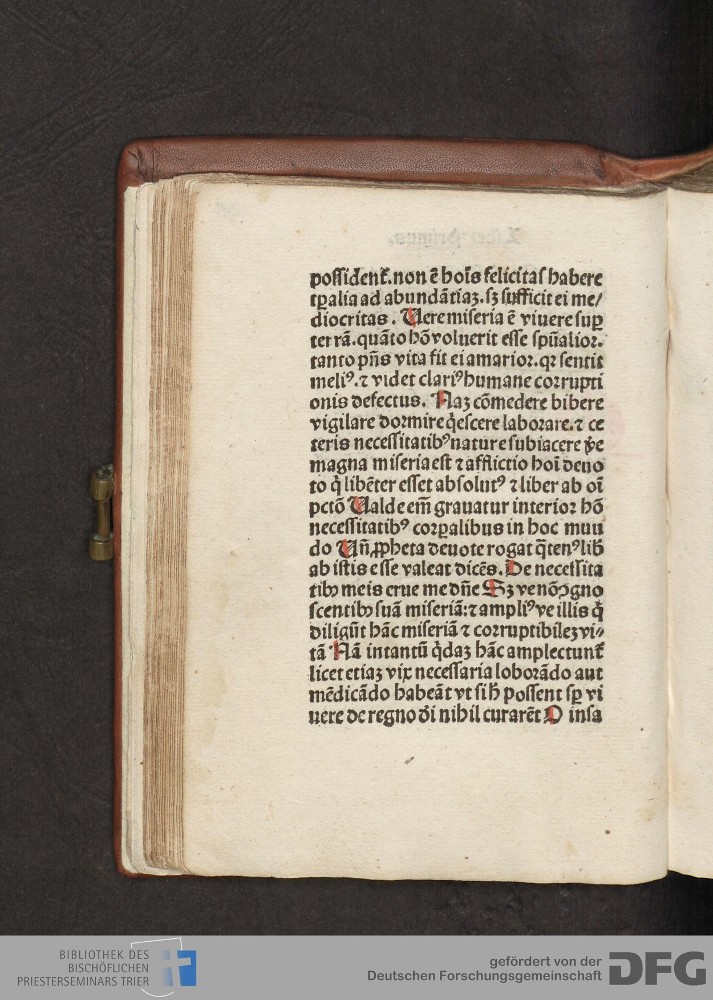 possident᷑. non ē hoīs felicitas habere
tꝑalia ad abundātiaꝫ. sꝫ sufficit ei me/
diocritas. Uere miseria ē viuere suꝑ
terrā. quāto hō voluerit esse spūalior.
tanto pn̄s vita fit ei amarior. qꝛ sentit
meliꝰ. ⁊ videt clariꝰ humane corrupti
onis defectus. Naꝫ cōmedere bibere
vigilare dormire q̇escere laborare. ⁊ ce
teris necessitatibꝰ nature subiacere v̄e
magna miseria est ⁊ afflictio hoī deuo
to q̇ libēter esset absolutꝰ ⁊ liber ab oī
pctō Ualde em̄ grauatur interior hō
necessitatibꝰ corꝑalibus in hoc muu
do Un̄ ꝓpheta deuote rogat q̄tenꝰ lib̄
ab istis esse valeat dicēs. De necessita
tibꝰ meis erue me dn̄e Sꝫ ve nō ꝯgno
scentibꝰ suā miseriā: ⁊ ampliꝰ ve illis q̇
diligūt hāc miseriā ⁊ corruptibileꝫ vi/
tā Nā intantū q̇daꝫ hāc amplectunt᷑
licet etiaꝫ vix necessaria loborādo aut
mēdicādo habeāt vt si h̄ possent sꝑ vi
uere de regno di̅ nihil curarēt O insa
BIBLIOTHEK DES
BISCHÖFLICHEN
PRIESTERSEMINARS TRIER
gefördert von der
Deutschen Forschungsgemeinschaft
DFG